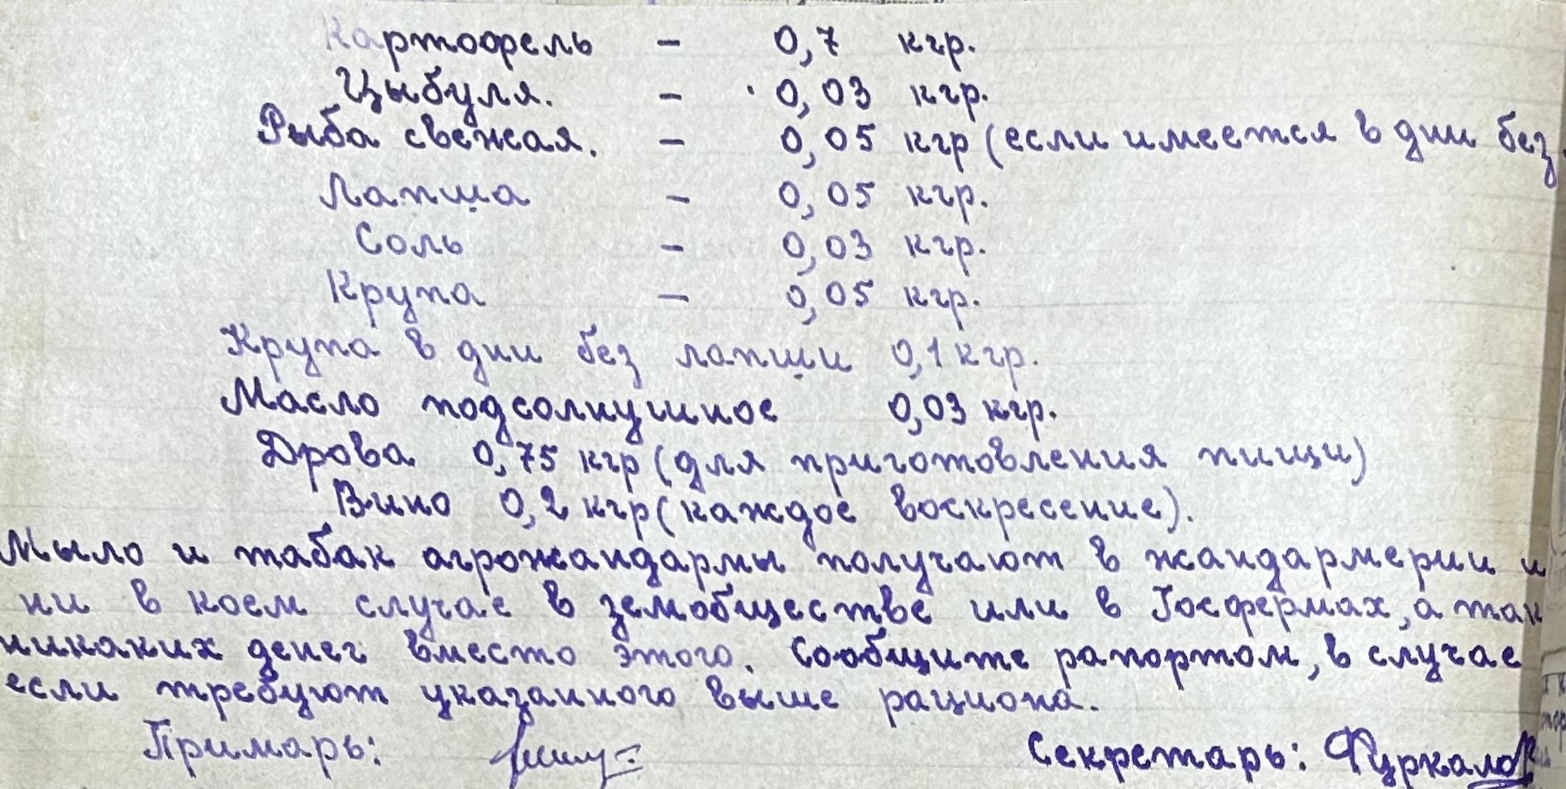 Картофель – 0,7 кгр.
Цыбуля. – 0,03 кгр.
Рыба свежая. – 0,05 кгр (если имеется в дни без
Лапша – 0,05 кгр.
Соль – 0,03 кгр.
Крупа – 0,05 кгр.
Крупа в дни без лапши 0,1 кгр.
Масло подсолнушное 0,03 кгр.
Дрова 0,75 кгр (для приготовления пищи)
Вино 0,2 кгр (каждое воскресение).
Мыло и табак агрожандармы получают в жандармерии и
ни в коем случае в земобществе или в Госфермах, а так
никаких денег вместо этого. Сообщите рапортом, в случае
если требуют указанного выше рациона.
Примарь:
Секретарь: Фуркало